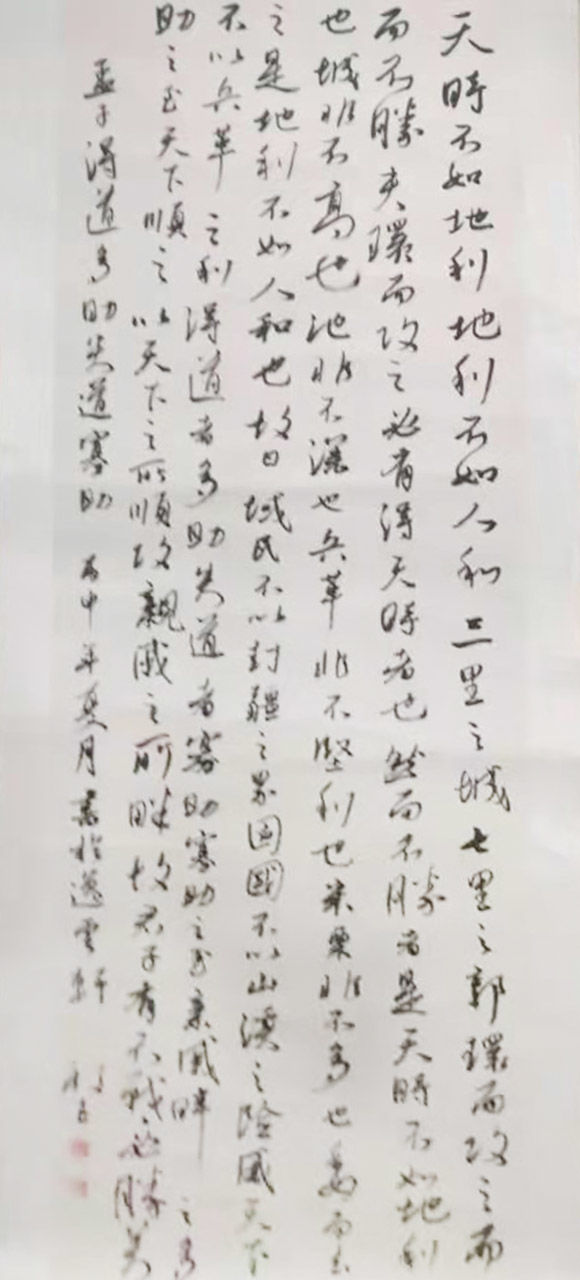 天時不如地利地利不如人和三里之城七里之郭環而攻之而
而不勝夫環而攻之必有得天時者也然而不勝者是天時不如地利
也城非不高也池非不深也兵革非不堅利也米粟非不多也委而去
之是地利不如人和也故曰域民不以封疆之界固國不以山溪之險威天下
不以兵革之利得道者多助失道者寡助寡助之至亲戚畔之多
助之至天下順之以天下之所順攻親戚之所畔故君子有不戰必勝矣
孟子得道多助失道寡助 丙申年夏月書於逸雲軒